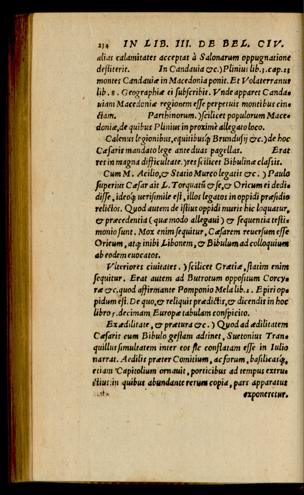 234 IN LIB. III. DE BEL. CIV.
alias calamitates acceptas à Salonarum oppugnatione
destiterit. In Candauia &c.) Plinius lib.3.cap.23
montes Candauiæ in Macedonia ponit. Et Volaterranus
lib. 8. Geographiæ ei subscribit. Vnde apparet Canda-
uiam Macedoniæ regionem esse perpetuis montibus cin-
ctam. Parthinorum.) scilicet populorum Mace-
doniæ, de quibus Plinius in proximè allegato loco.
Calenus legionibus, equitibusq; Brundusij &c.) de hoc
Cæsaris mandato lege ante duas pagellas. Erat
res in magna difficultate.) res scilicet Bibulinæ classis.
Cum M. Acilio, & Statio Murco legatis &c.) Paulo
superius Cæsar ait L. Torquatũ & se, & Oricum ei dedi-
disse, ideoq; uerisimile est, illos legatos in oppidi præsidio
relictos. Quod autem de istius oppidi muris hic loquatur,
& præcedentia (quæ modo allegaui) & sequentia testi-
monio sunt. Mox enim sequitur, Cæsarem reuersum esse
Oricum, atq; inibi Libonem, & Bibulum ad colloquium
ab eodem euocatos.
Vlteriores ciuitates.) scilicet Græciæ, statim enim
sequitur. Erat autem ad Butrotum oppositum Corcy-
ræ &c, quod affirmante Pomponio Mela lib. 2. Epiri op-
pidum est. De quo, & reliquis prædictis, & dicendis in hoc
libro, decimam Europæ tabulam conspicito.
Ex ædilitate, & prætura &c.) Quod ad ædilitatem
Cæsaris cum Bibulo gestam adtinet, Suetonius Tran-
quillus simultatem inter eos sic conflatam esse in Iulio
narrat. Aedilis præter Comitium, ac forum, basilicasq;,
etiam Capitolium ornauit, porticibus ad tempus extru-
ctis: in quibus abundante rerum copia, pars apparatus
exponeretur.